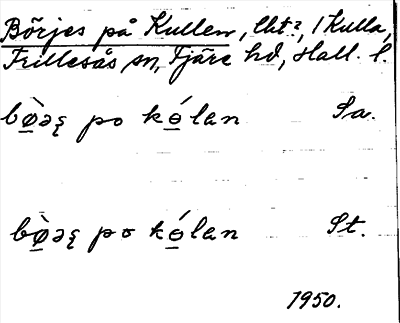 Börjes på Kullen, lht?, 1 Kulla,
Frillesås sn, Fjäre hd, Hall. l.
bø̠̀əʂ po kó̠lan Sa.
bø̠̀əʂ po kó̠lan St.
1950.